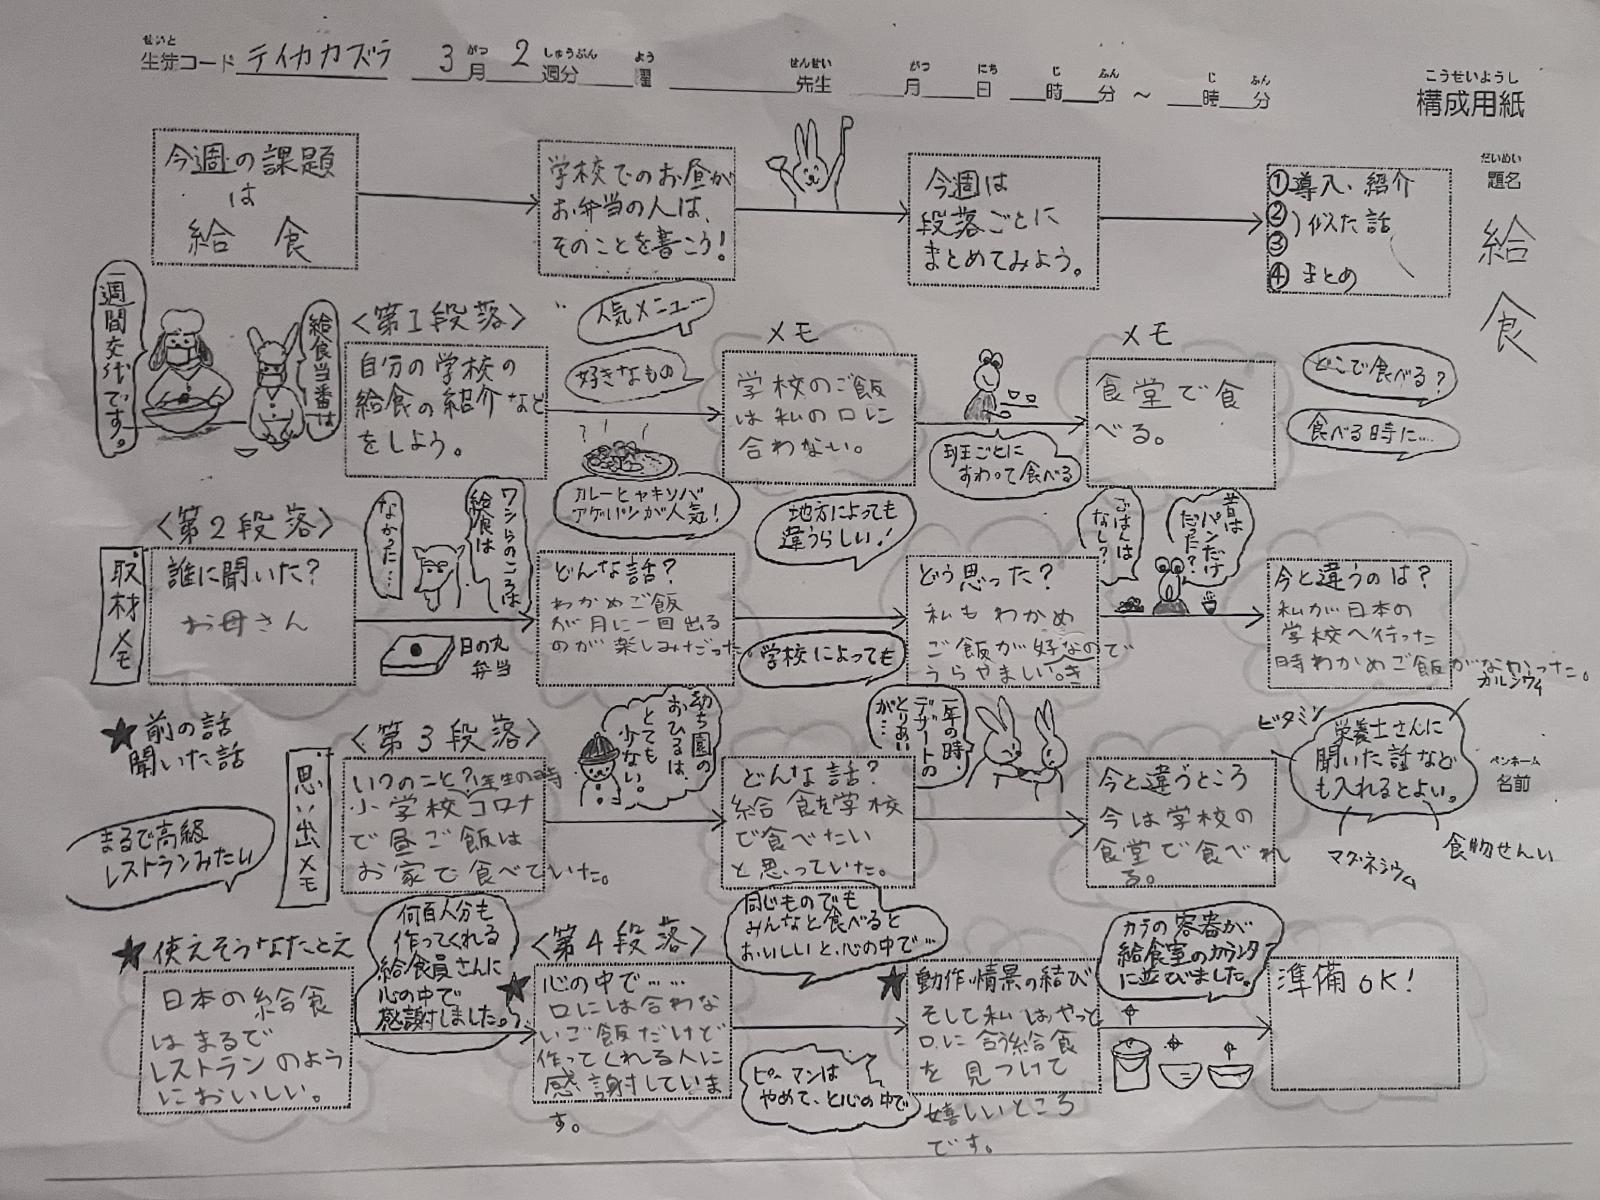 せいと
生徒コード テイカカズラ 3月 2週分 曜 先生 月 日 時 分 ～ 時 分
がつ しゅうぶん よう せんせい がつ にち じ ふん じ ふん
こうせいようし
構成用紙
だいめい
題名
給食
今週の課題
は
給 食
学校でのお昼が
お弁当の人は、
そのことを書こう!
今週は
段落ごとに
まとめてみよう。
①導入、紹介
②
③ 似た話
④まとめ
一週間交代です。
給食当番は
<第1段落>
自分の学校の
給食の紹介など
をしよう。
人気メニュー
好きなもの
カレーとヤキソバ
アゲパンが人気!
メモ
学校のご飯
は私の口に
合わない。
班ごとに
すわって食べる
メモ
食堂で食
べる。
どこで食べる?
食べる時に…
<第2段落>
取材メモ
誰に聞いた?
お母さん
ワシらのころは
給食は
なかった…
日の丸
弁当
どんな話?
わかめご飯
が月に一回出る
のが楽しみだった。
地方によっても
違うらしい!
学校によっても
どう思った?
私もわかめ
ご飯が好きなので
うらやましい。
昔は
パンだけ
だった?
ごはんは
なし?
今と違うのは?
私が日本の
学校へ行った
時わかめご飯がなかった。
★前の話
聞いた話
<第3段落>
思い出メモ
いつのこと?1年生の時
小学校コロナ
で昼ご飯は
お家で食べていた。
幼ち園の
おひるは、
とても
少ない。
どんな話?
給食を学校
で食べたい
と思っていた。
一年の時、
デザートの
とりあい
が…
今と違うところ
今は学校の
食堂で食べれ
る。
ビタミン
カルシウム
栄養士さんに
聞いた話など
も入れるとよい。
マグネシウム
食物せんい
ペンネーム
名前
まるで高級
レストランみたい
★使えそうなたとえ
日本の給食
はまるで
レストランのよう
においしい。
何百人分も
作ってくれる
給食員さんに
心の中で
感謝しました。
<第4段落>
★心の中で……
口には合わな
いご飯だけど
作ってくれる人に
感謝していま
す。
同じものでも
みんなと食べると
おいしいと、心の中で…
ピーマンは
やめて、と心の中で
★動作・情景の結び
そして私はやっと
口に合う給食
を見つけて
嬉しいところ
です。
カラの容器が
給食室のカウンタ
に並びました。
準備OK!